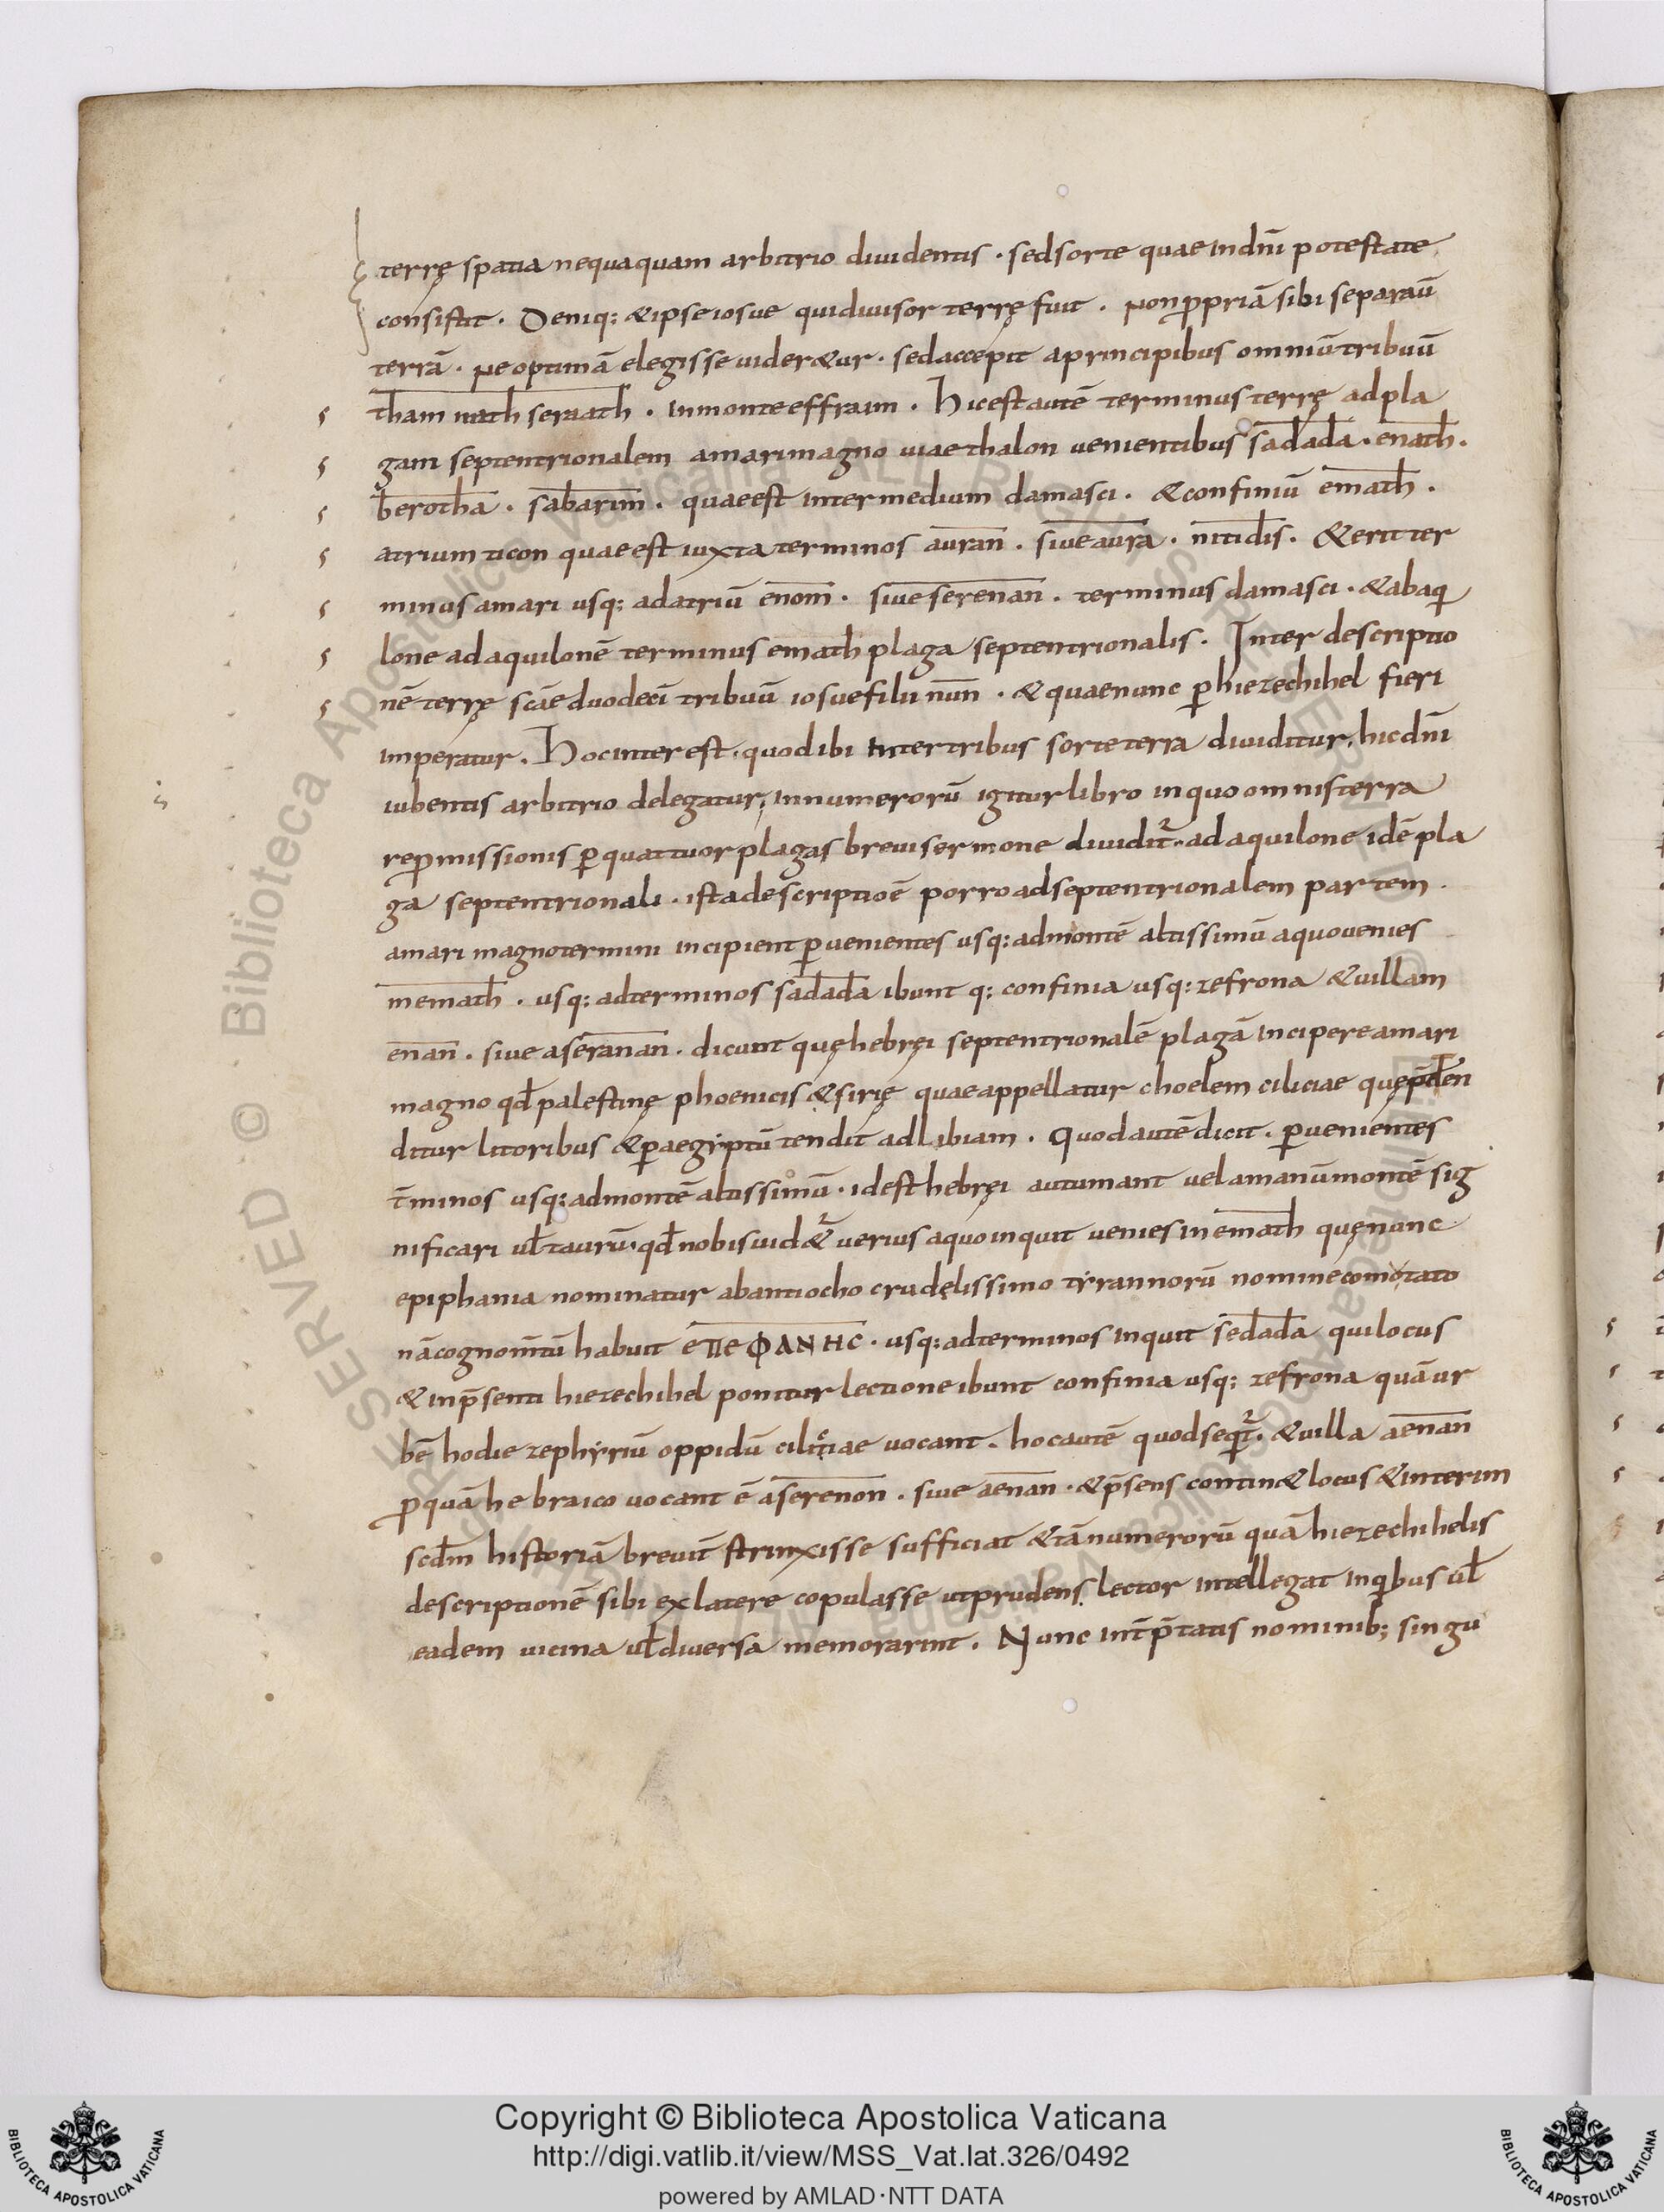 terrę spatia nequaquam arbitrio diuidentis · sed sorte quae in dn̄i potestate
consistit · Deniq; & ipse iosue qui diuisor terrę fuit · Non ꝓpriā sibi separaū
terrā · Ne optimā elegisse uider&ur · sed accepit a principibus omniū tribuū
tham nath seraath · in monte effraim · Hic est autē terminus terrę ad pla
gam septentrionalem a mari magno uiaethalon uenientibus sadada · emath ·
berotha · sabarim · quae est inter medium damasci · & confiniū emath ·
atrium ticon quae est iuxta terminos auran · siue aura · nitidis · & erit ter
minus a mari usq; ad atriū enom · siue serenan · terminus damasci · & ab aqi
lone ad aquilonē terminus emath plaga septentrionalis · Inter descriptio
nē terrę scāe duodeci tribuū iosue filii nun · & quae nunc ꝑ hiezechihel fieri
imperatur · Hoc interest · quod ibi inter tribus sorte terra diuiditur, hic dn̄i
iubentis arbitrio delegatur; in numerorū igitur libro in quo omnis terra
reꝓmissionis ꝑ quattuor plagas breui sermone diuidit᷑ · ad aquilone idē pla
ga septentrionali · ista descriptio ē porro ad septentrionalem partem ·
a mari magno termini incipient ꝑuenientes usq; ad montē altissimū a quo uenies
memath · usq; ad terminos sadada ibunt q; confinia usq; zefrona & uillam
enan · siue aseranan · dicunt quę hebręi septentrionalē plagā incipere a mari
magno qd̄ palestinę phoenicis & sirię quae appellatur choelem ciliciae quę p̄den
ditur litoribus & ꝑ aegyptū tendit ad libiam · Quod autē dicit · ꝑuenientes
t̄minos usq; ad montē altissimū · id est hebręi autumant uel amanū montē sig
nificari ul̄ taurū · qd̄ nobis uid&᷑ uerius a quo inquit uenies in emath quę nunc
epiphania nominatur ab antiocho crudęlissimo tyrannorū nomine comotato
nā cognom̄tū habuit eΠΕΦΑΝΗC · usq; ad terminos inquit sedada qui locus
& in p̄senti hiezechihel ponitur lectione ibunt confinia usq; zefrona quā ur
bē hodie zephyriū oppidū ciliciae uocant · hoc autē quod seqt᷑ · & uilla aenan
ꝓ quā hebraico uocant̄ ē aserenon · siue aenan · & p̄sens contin& locus & interim
scdm̄ historiā breuit̄ strinxisse sufficiat & tā numerorū quā hiezechihelis
descriptionē sibi ex latere copulasse ut prudens lector intellegat in qibus ul̄
eadem uicina ul̄ diuersa memorarint · Nunc int̄p̄tatis nominib; singu
Copyright © Biblioteca Apostolica Vaticana
http://digi.vatlib.it/view/MSS_Vat.lat.326/0492
powered by AMLAD·NTT DATA